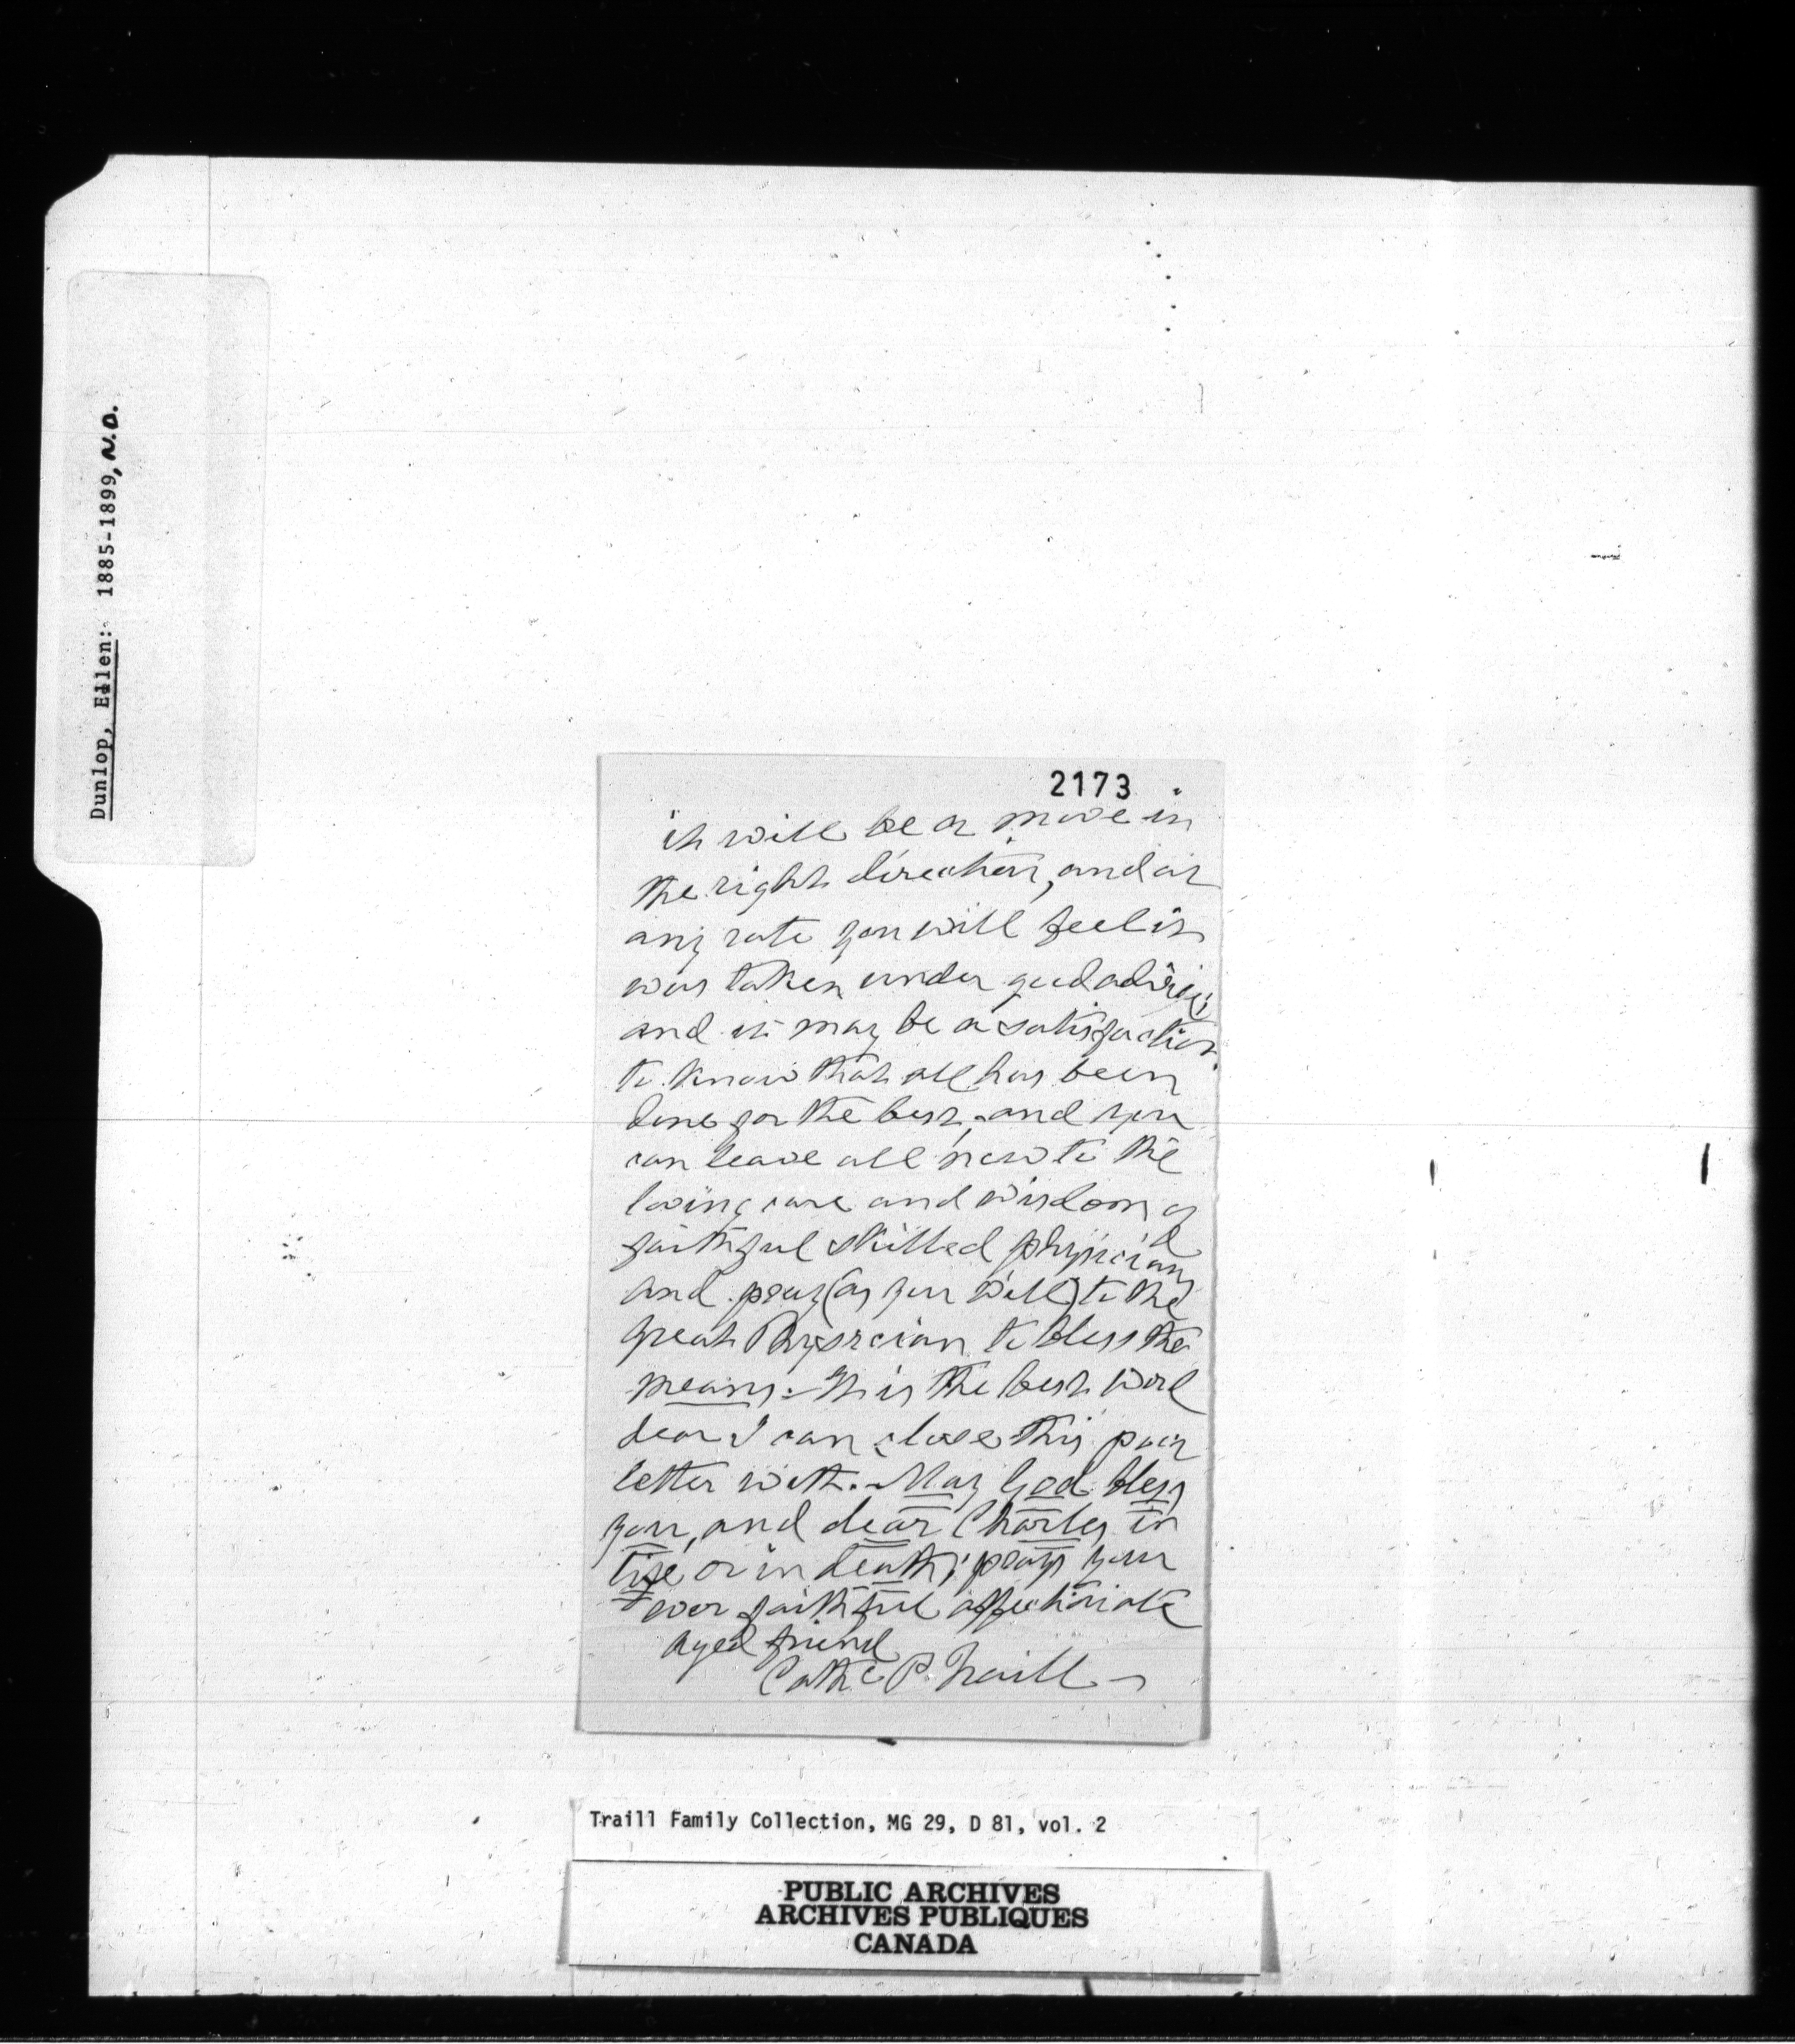 Dunlop, Ellen: 1885-1899, N.D.
2173
it will be a move in
the right direction, and at
any rate you will feel it
was taken under good advice;
and it may be a satisfaction
to know that all has been
done for the best, and you
can leave all now to the
loving care and wisdom of
faithful skilled physician
and pray (as you will) to the
great Physician to bless the
means. It is the best word
dear I can close this poor
letter with. - May God bless
you, and dear Charles in
life or in death; prays your
ever faithful affectionate
aged friend
Cathe P. Traill -
Traill Family Collection, MG 29, D 81, vol. 2
PUBLIC ARCHIVES
ARCHIVES PUBLIQUES
CANADA